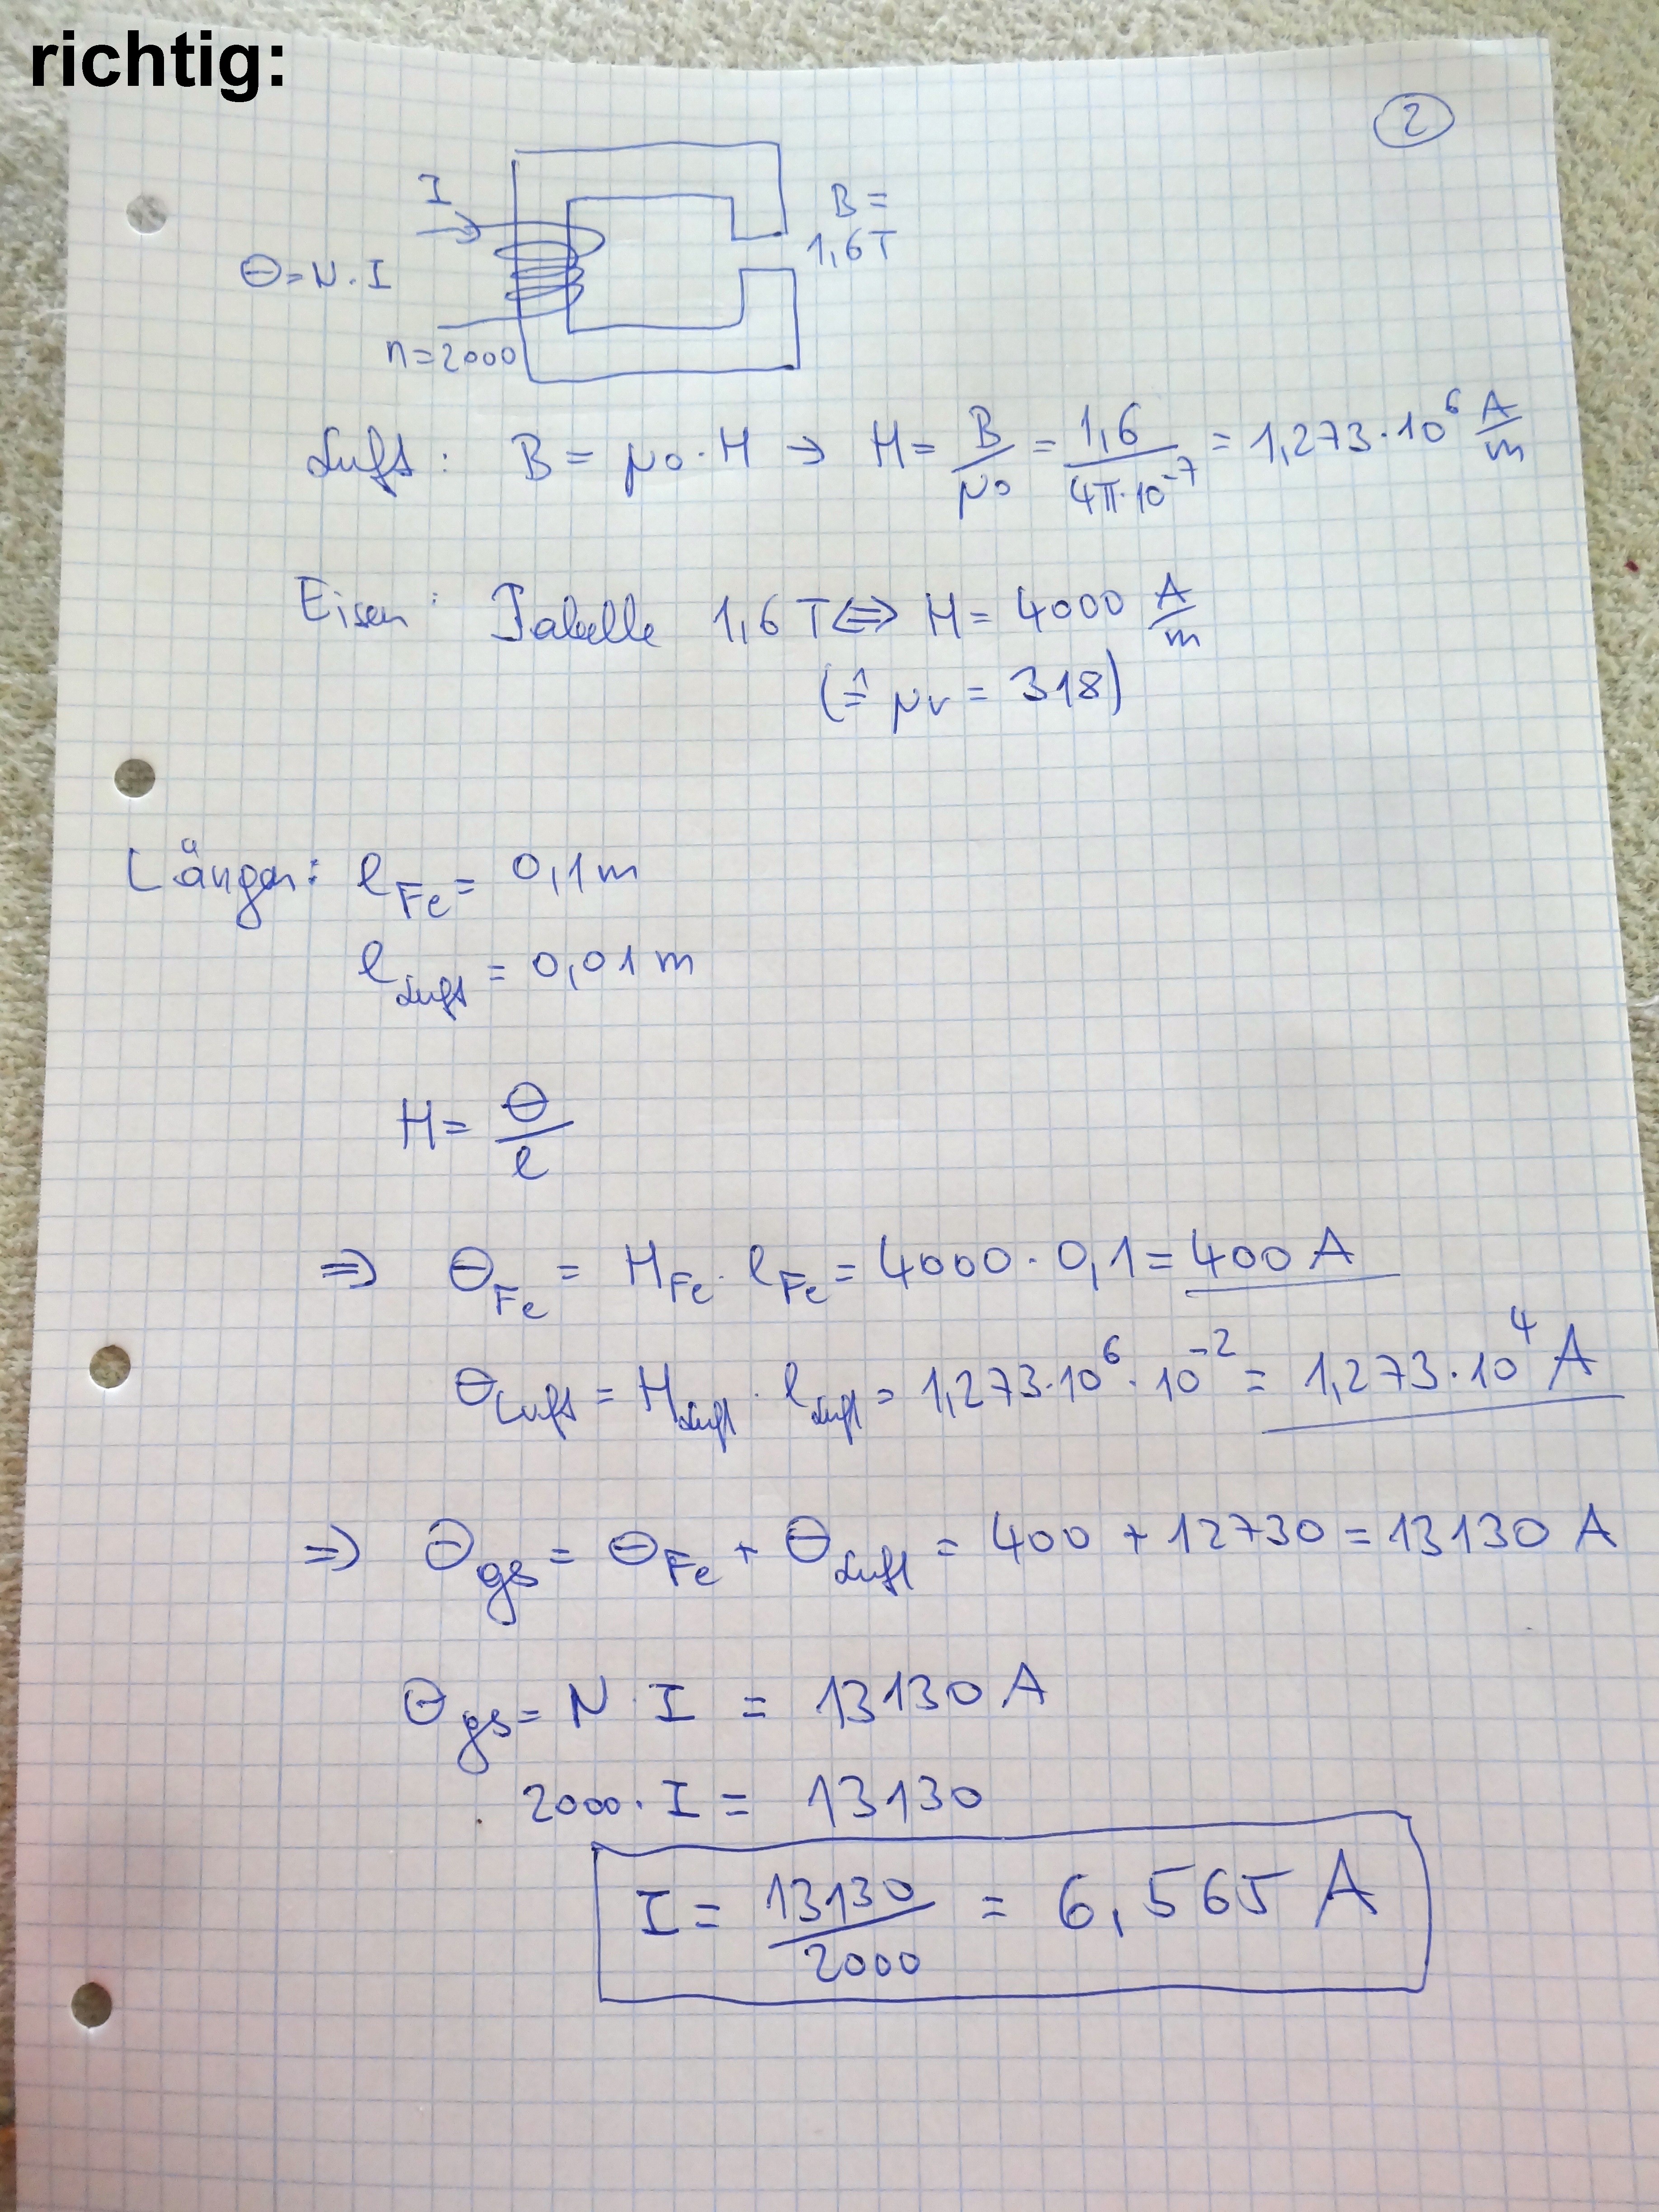 richtig:
2
I
B =
1,6T
Θ = N · I
n = 2000
Luft: B = μ0 · H → H = B/μ0 = 1,6/(4π·10⁻⁷) = 1,273 · 10⁶ A/m
Eisen: Tabelle 1,6 T ⇔ H = 4000 A/m
(≙ μr = 318)
Längen: l_Fe = 0,1 m
l_Luft = 0,01 m
H = Θ/l
⇒ Θ_Fe = H_Fe · l_Fe = 4000 · 0,1 = 400 A
Θ_Luft = H_Luft · l_Luft = 1,273 · 10⁶ · 10⁻² = 1,273 · 10⁴ A
⇒ Θ_gs = Θ_Fe + Θ_Luft = 400 + 12730 = 13130 A
Θ_gs = N · I = 13130 A
2000 · I = 13130
I = 13130/2000 = 6,565 A